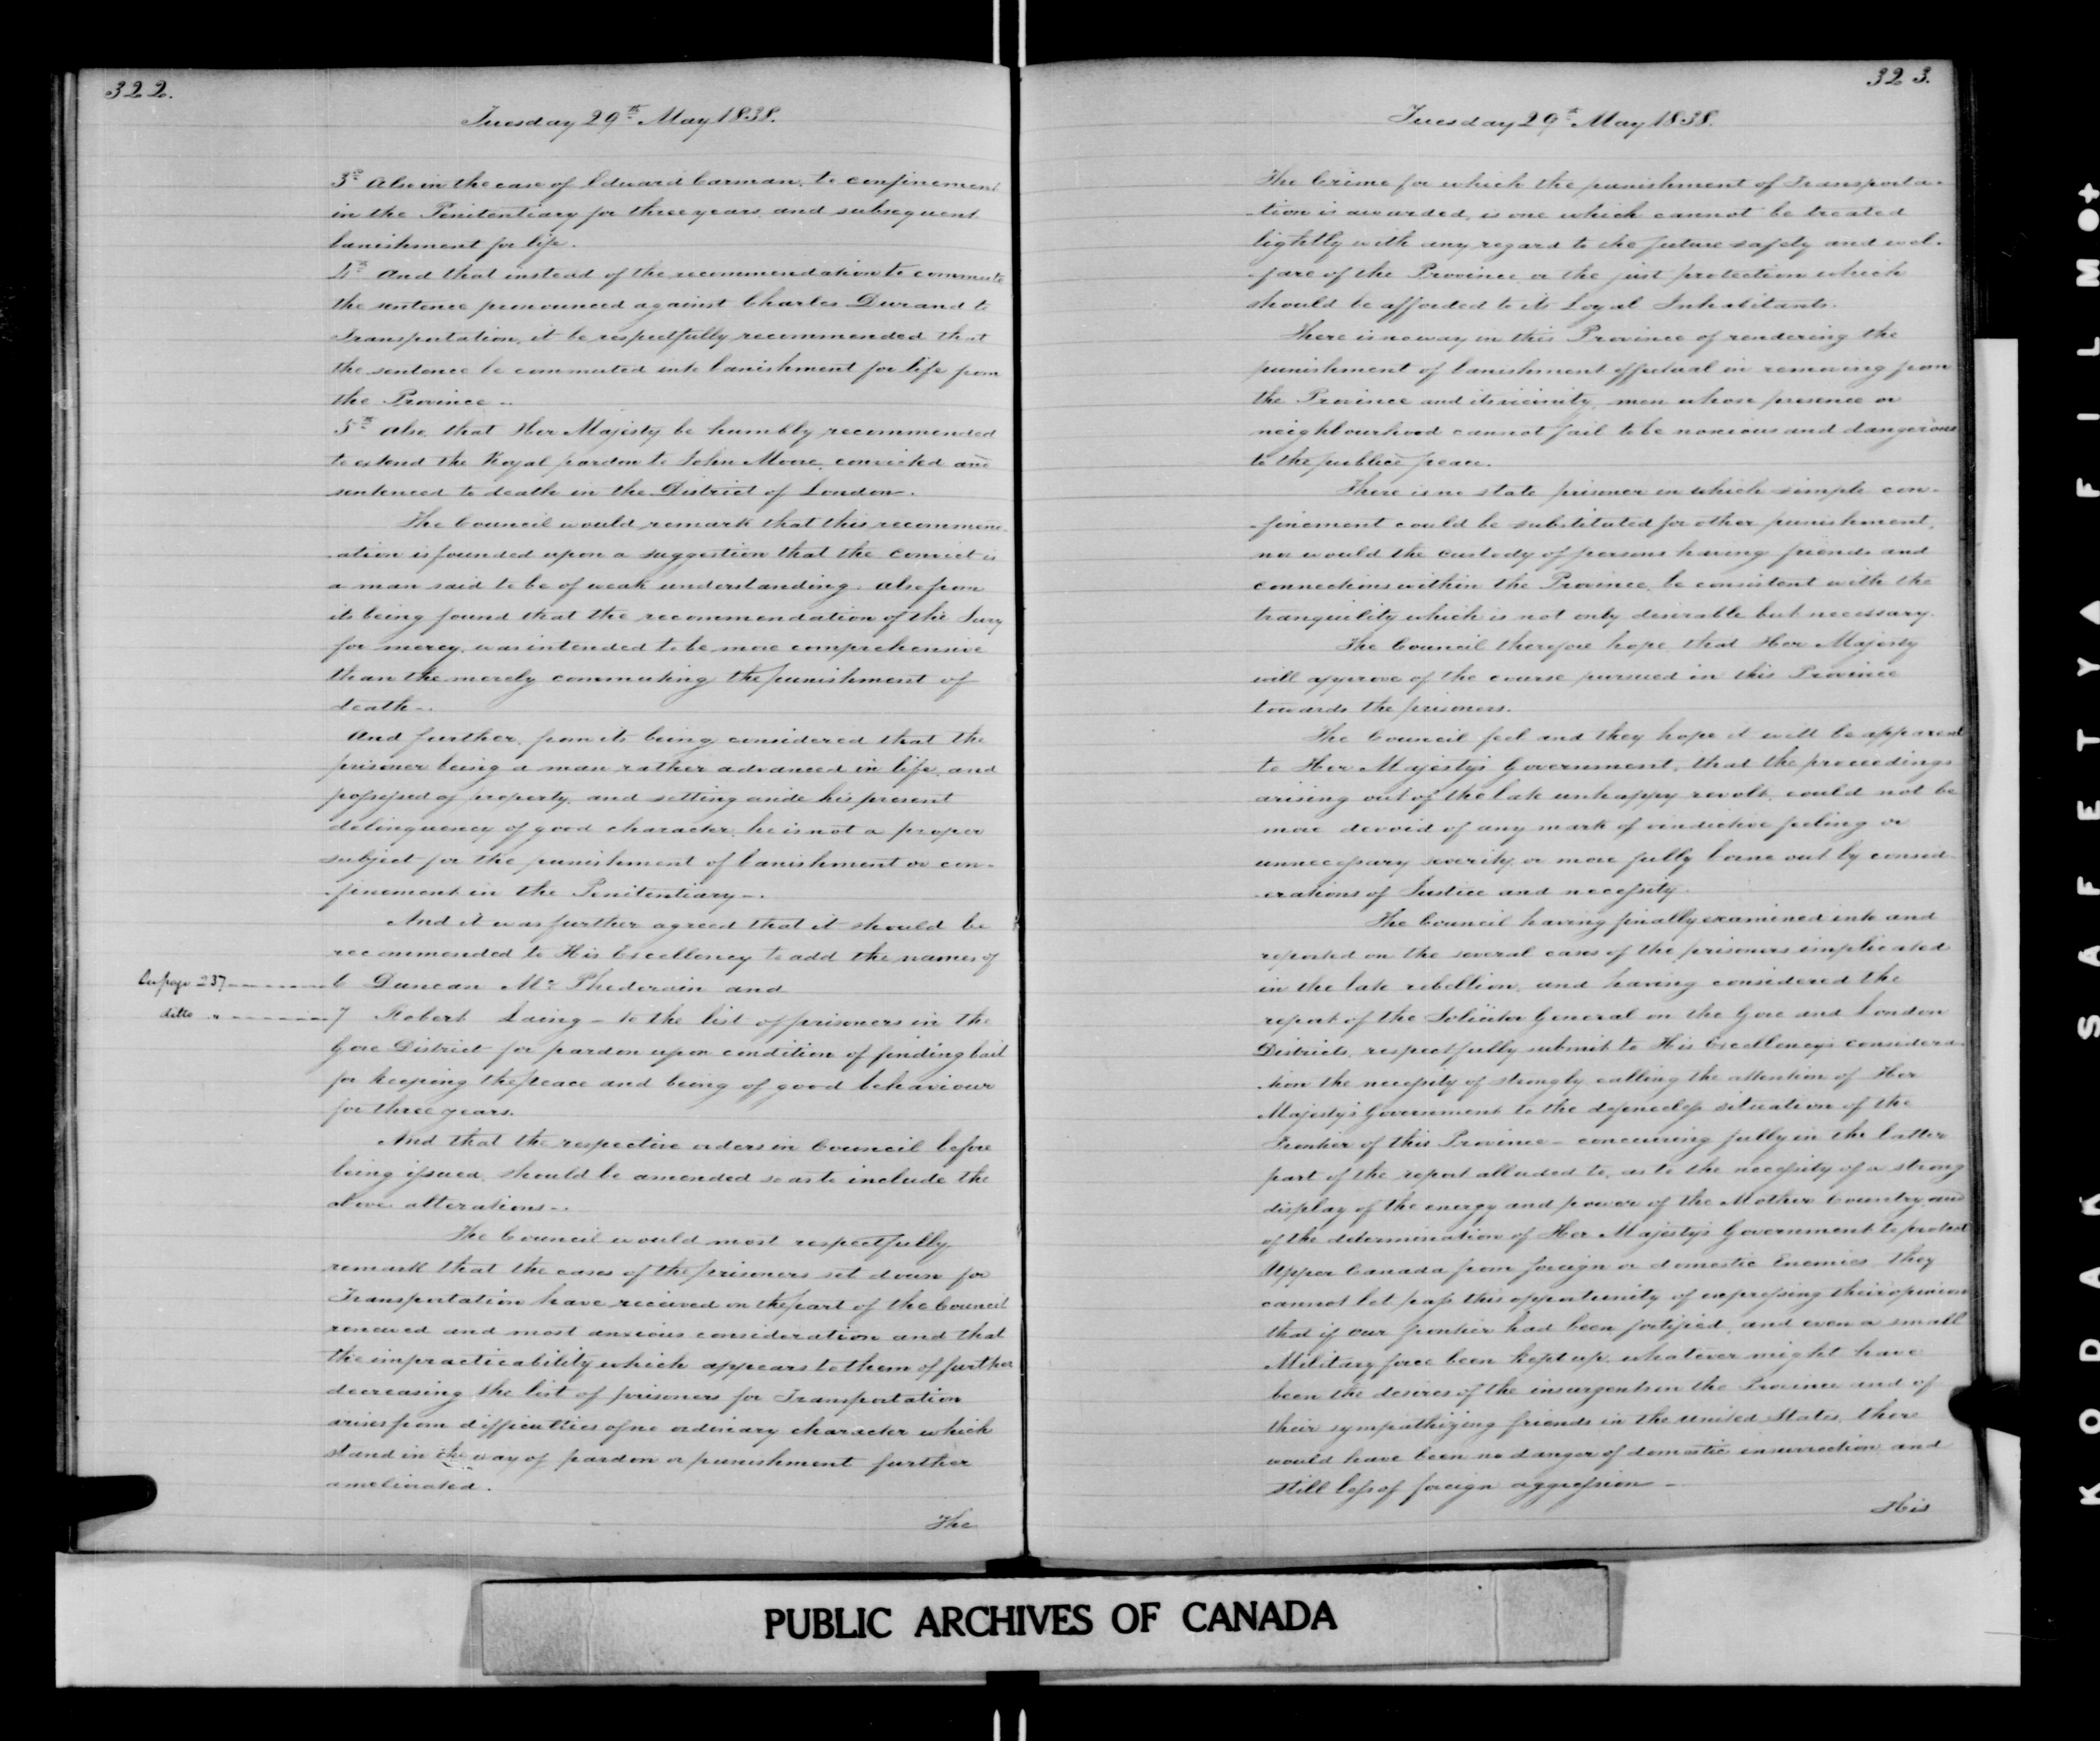 322.
Tuesday 29th May 1838.
3d. Also in the case of Edward Carman, to confinement
in the Penitentiary for three years and subsequent
banishment for life.
4th And that instead of the recommendation to commute
the sentence pronounced against Charles Durand to
Transportation, it be respectfully recommended that
the sentence be commuted into banishment for life from
the Province..
5th Also, that Her Majesty be humbly recommended
to extend the Royal pardon to John Moore, convicted and
sentenced to death in the District of London.
The Council would remark that this recommend-
-ation is founded upon a suggestion that the Convict is
a man said to be of weak understanding. Also from
its being found that the recommendation of the Jury
for mercy, was intended to be more comprehensive
than the merely commuting the punishment of
death..
And further, from its being considered that the
prisoner being a man rather advanced in life, and
possessed of property, and setting aside his present
delinquency of good character, he is not a proper
subject for the punishment of banishment or con-
-finement in the Penitentiary-.
And it was further agreed that it should be
recommended to His Excellency to add the names of
page 237 6 Duncan Mc Phederain and
ditto 7 Robert Laing - to the list of prisoners in the
Gore District for pardon upon condition of finding bail
for keeping the peace and being of good behaviour
for three years.
And that the respective orders in Council before
being issued, should be amended so as to include the
above alterations..
The Council would most respectfully
remark that the cases of the prisoners set down for
Transportation have received on the part of the Council
renewed and most anxious consideration and that
the impracticability which appears to them of further
decreasing the list of prisoners for Transportation
arises from difficulties of no ordinary character which
stand in the way of pardon or punishment further
ameliorated.
The
323.
Tuesday 29th May 1838.
The Crime for which the punishment of Transporta-
-tion is awarded, is one which cannot be treated
lightly with any regard to the future safety and wel-
-fare of the Province or the just protection which
should be afforded to its Loyal Inhabitants.
There is no way in this Province of rendering the
punishment of banishment effectual in removing from
the Province and its vicinity, men whose presence or
neighbourhood cannot fail to be noxious and dangerous
to the public peace.
There is no state prisoner in which simple con-
-finement could be substituted for other punishment,
nor would the custody of persons having friends and
connections within the Province, be consistent with the
tranquility which is not only desirable but necessary.
The Council therefore hope that Her Majesty
will approve of the course pursued in this Province
towards the prisoners.
The Council feel and they hope it will be apparent
to Her Majesty's Government, that the proceedings
arising out of the late unhappy revolt, could not be
more devoid of any mark of vindictive feeling or
unnecessary severity, or more fully borne out by consid-
-erations of Justice and necessity.
The Council having finally examined into and
reported on the several cases of the prisoners implicated
in the late rebellion, and having considered the
report of the Solicitor General on the Gore and London
Districts, respectfully submit to His Excellency's considera-
-tion the necessity of strongly calling the attention of Her
Majesty's Government to the defenceless situation of the
Frontier of this Province - concurring fully in the latter
part of the report alluded to, as to the necessity of a strong
display of the energy and power of the Mother Country and
of the determination of Her Majesty's Government to protect
Upper Canada from foreign or domestic Enemies, they
cannot let pass this opportunity of expressing their opinion
that if our frontier had been fortified, and even a small
Military force been kept up, whatever might have
been the desires of the insurgents in the Province and of
their sympathizing friends in the United States, there
would have been no danger of domestic insurrection and
still less of foreign aggression -
His
PUBLIC ARCHIVES OF CANADA
KODAK SAFETY▲FILM●+